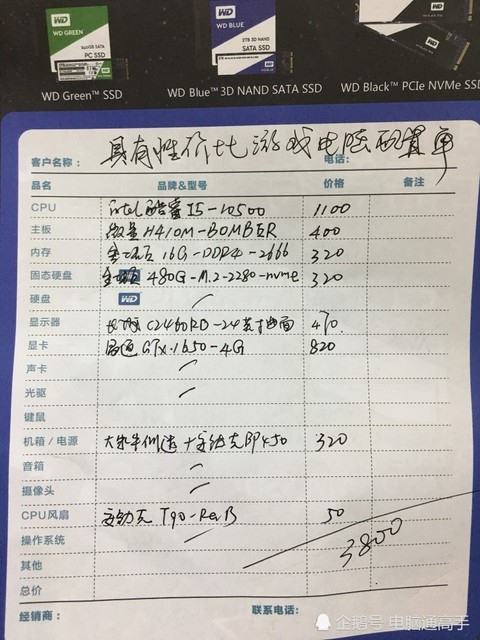 WD GREEN
SATA
PC SSD
WD BLUE
3D NAND
SATA SSD
WD Green™ SSD
WD Blue™ 3D NAND SATA SSD
WD Black™ PCIe NVMe SSD
具有性价比游戏电脑配置单
客户名称： 电话：
品名 品牌&型号 价格 备注
CPU intel酷睿I5-10500 1100
主板 微星H410M-BOMBER 400
内存 16G-DDR4-2666 320
固态硬盘 480G-M.2-2280-nvme 320
硬盘 WD
显示器 C2460RD-24英寸曲面 470
显卡 GTX1650-4G 820
声卡
光驱
键鼠
机箱 / 电源 450 320
音箱
摄像头
CPU风扇 T90-RevB 50
操作系统
其他 3800
总价
经销商： 联系电话：
企鹅号 电脑通高手